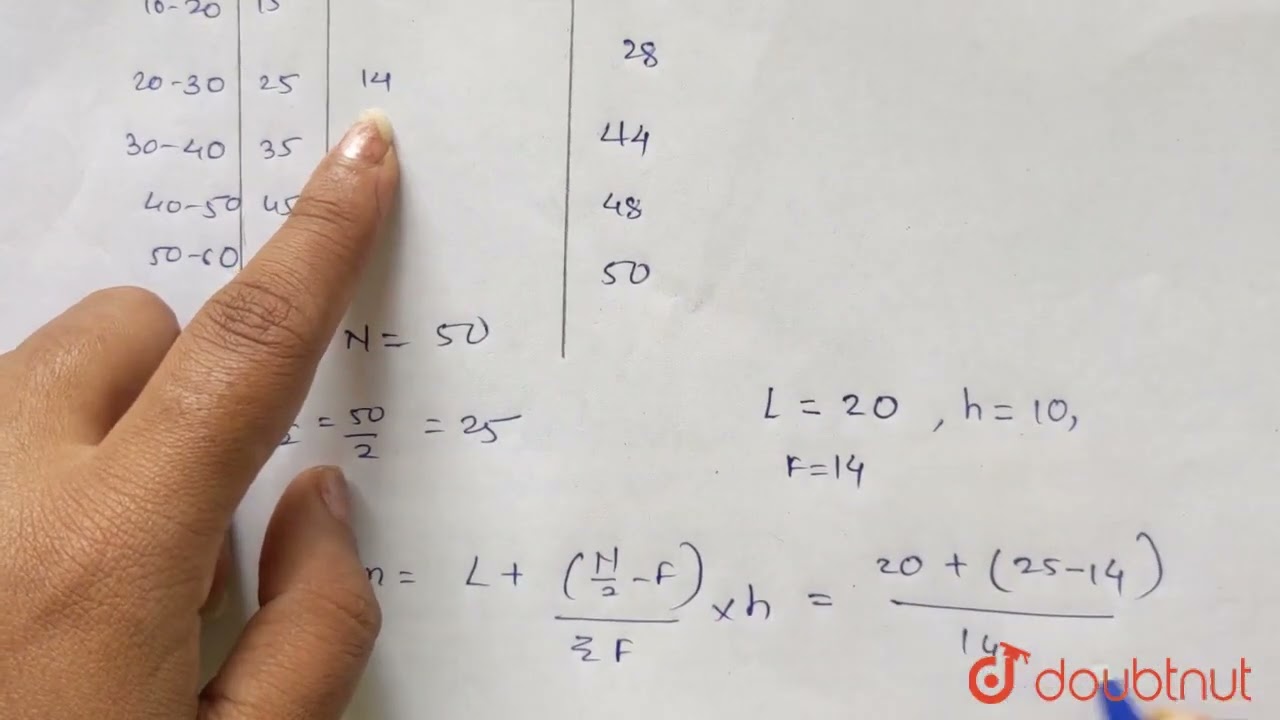 10-20 15
28
20-30 25 14
30-40 35 44
40-50 45 48
50-60 50
N = 50
= 50/2 = 25
L = 20, h = 10,
F = 14
n = L + (N/2 - F)/ΣF × h = 20 + (25-14)/14
doubtnut